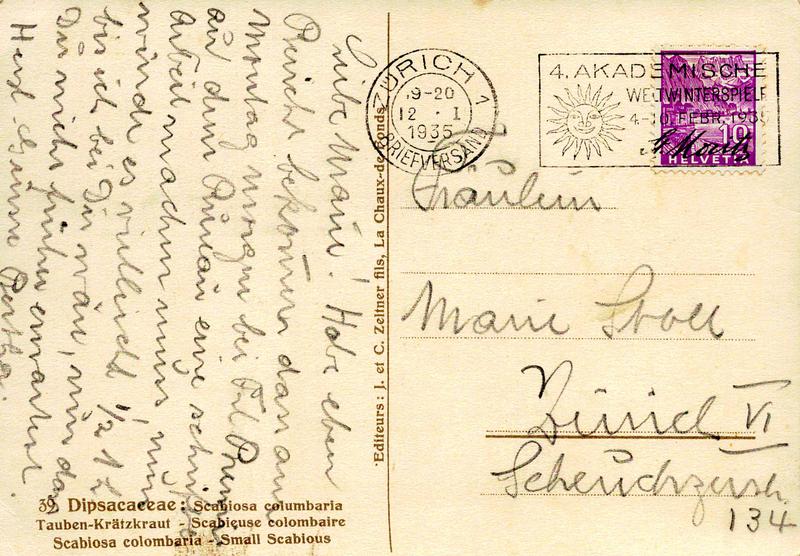 Liebe Marie! Habe eben
Bericht bekommen dass am
Montag morgen bei Frl
auf dem Büreau eine schriftl
Arbeit machen muss, nun
würde es vielleicht 1/2 1 h
bis ich bei Dir wär, nur dass
Du mich früher erwartest
Herzl Grüsse Bertha.
Editeurs: J. et C. Zeltner fils, La Chaux-de-Fonds
39 Dipsacaceae: Scabiosa columbaria
Tauben-Krätzkraut - Scabieuse colombaire
Scabiosa colombaria - Small Scabious
ZÜRICH 1
19-20
12. I
1935
BRIEFVERSAND
4. AKADEMISCHE
WELTWINTERSPIELE
4-10. FEBR. 1935
St. Moritz
10
HELVETIA
Fräulein
Marie Stoll
Zürich VI
Scheuchzerstr.
134